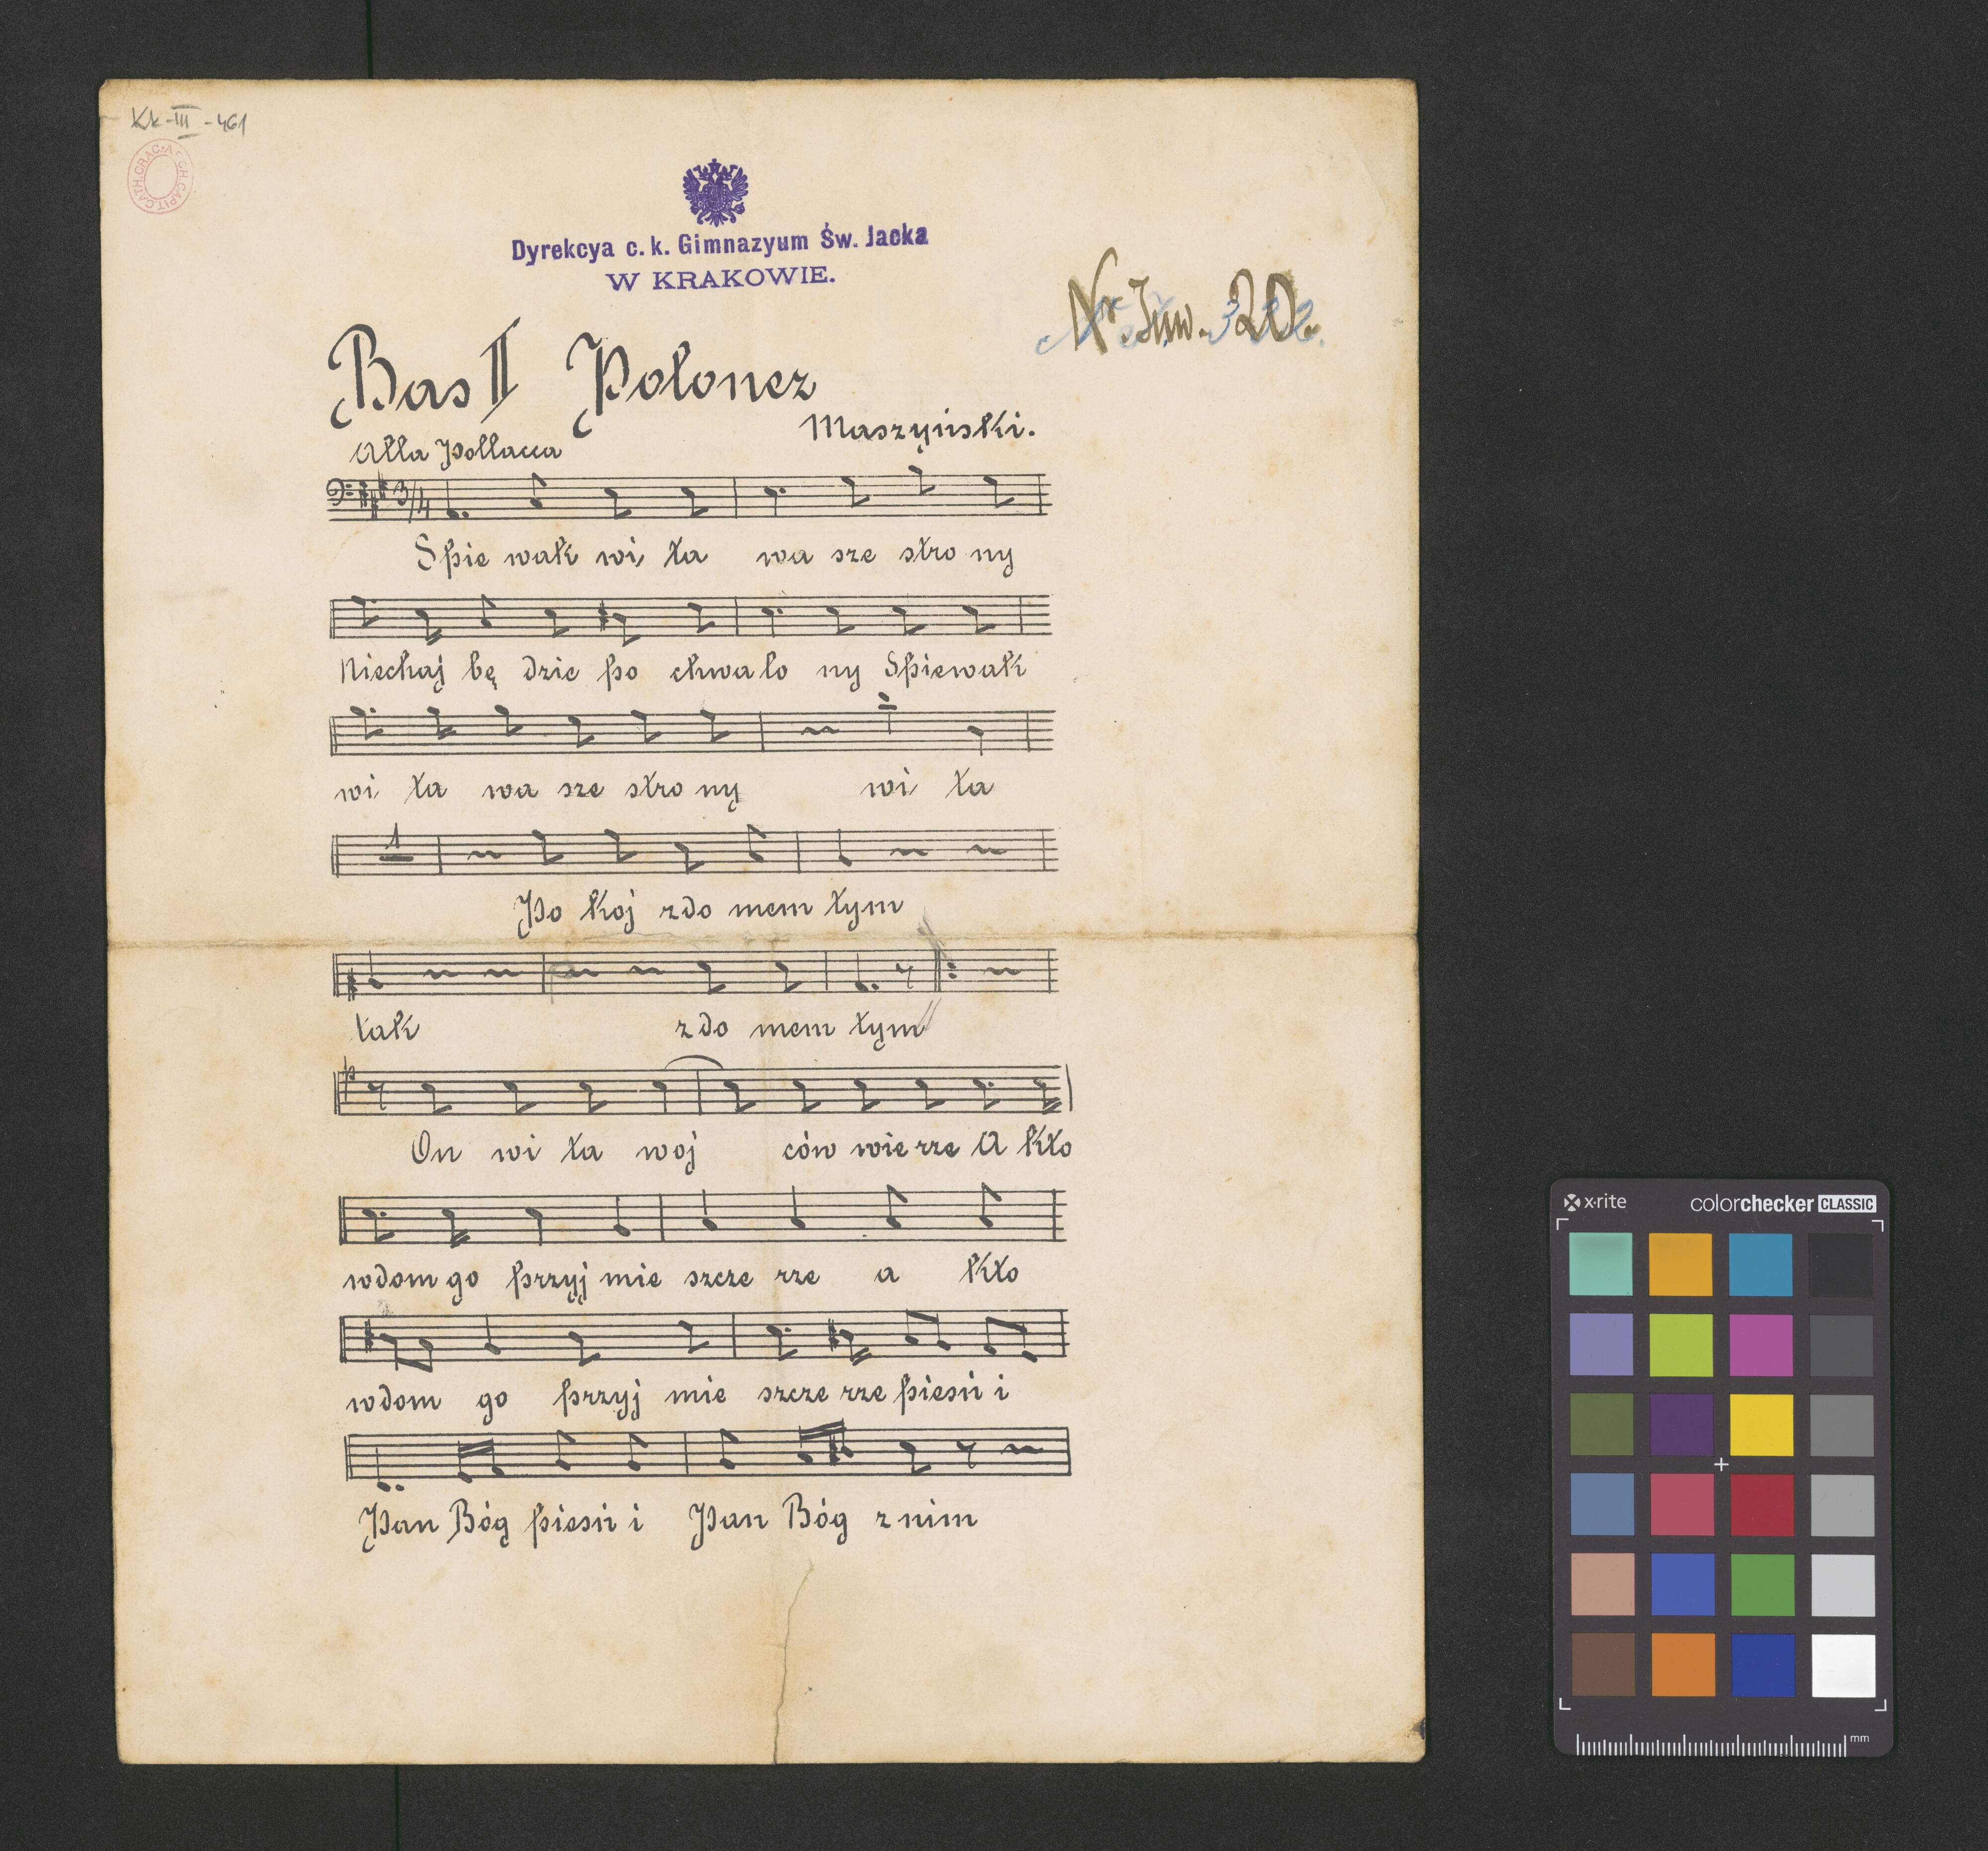 Kk-III-461
ARCH. CAPIT. CATH. CRAC.
Dyrekcya c. k. Gimnazyum Św. Jacka
W KRAKOWIE.
Nr. Inw. 20.
Bas II Polonez
Maszyński.
Alla Pollacca
3/4
Spie wak wi ta wa sze stro ny
Niechaj bę dzie po chwa lo ny Spiewak
wi ta wa sze stro ny wi ta
1
Po koj z do mem tym
tak z do mem tym
On wi ta woj ców wie rze A kto
wdom go przyj mie szcze rze a kto
wdom go przyj mie szcze rze pieśń i
Pan Bóg pieśń i Pan Bóg z nim
x·rite colorchecker CLASSIC
mm